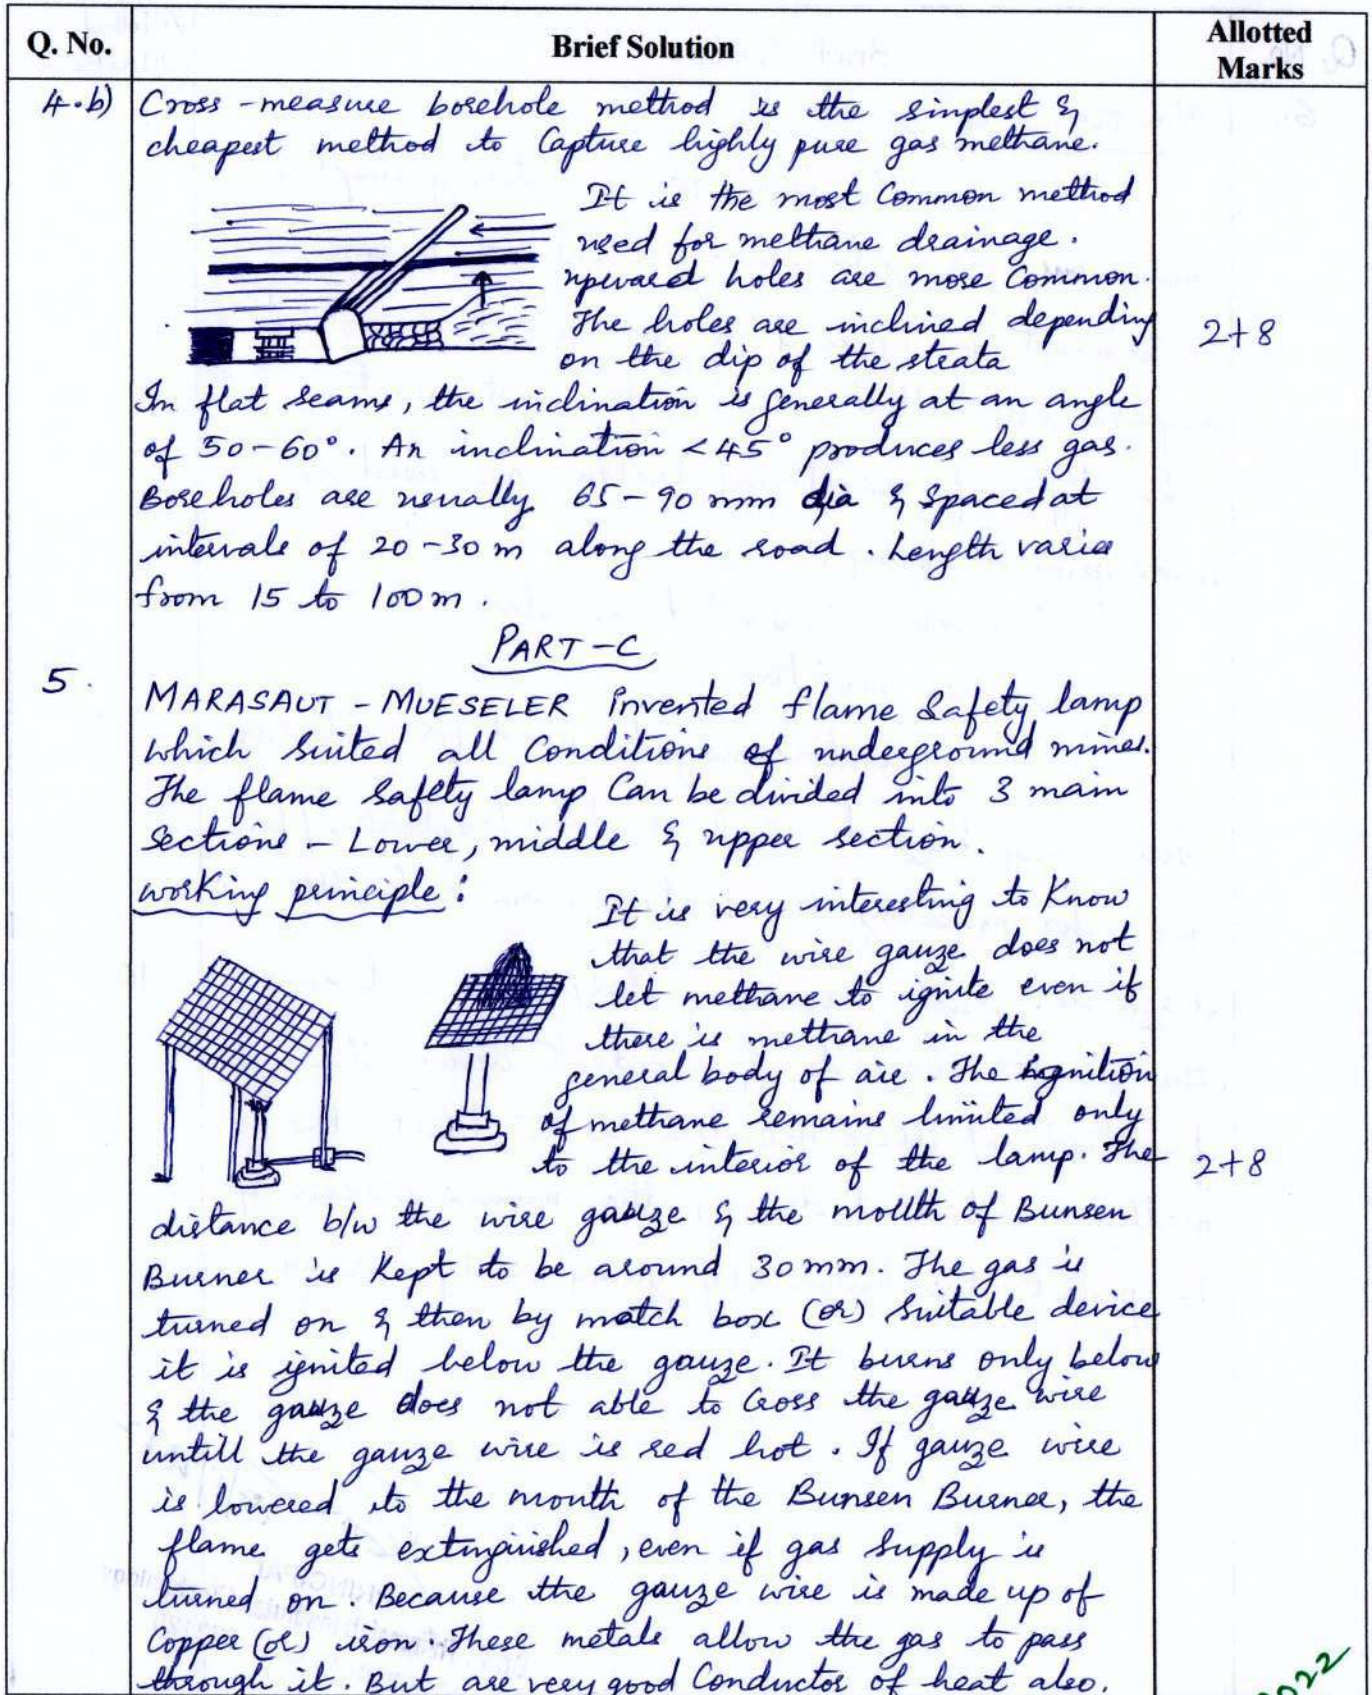 Q. No.
Brief Solution
Allotted
Marks
4.b)
Cross-measure borehole method is the simplest &
cheapest method to Capture highly pure gas methane.
It is the most Common method
used for methane drainage.
upward holes are more Common.
The holes are inclined depending
on the dip of the strata
2+8
In flat seams, the inclination is generally at an angle
of 50-60°. An inclination <45° produces less gas.
Boreholes are usually 65-90 mm dia & Spaced at
intervals of 20-30 m along the road. Length varies
from 15 to 100m.
PART-C
5.
MARASAUT - MUESELER invented flame Safety lamp
which suited all Conditions of underground mines.
The flame Safety lamp Can be divided into 3 main
Sections - Lower, middle & upper section.
working principle:
It is very interesting to Know
that the wire gauze does not
let methane to ignite even if
there is methane in the
general body of air. The ignition
of methane remains limited only
to the interior of the lamp. The
2+8
distance b/w the wire gauze & the mouth of Bunsen
Burner is Kept to be around 30mm. The gas is
turned on & then by match box (or) Suitable device
it is ignited below the gauze. It burns only below
& the gauze does not able to Cross the gauze wire
untill the gauze wire is red hot. If gauze wire
is lowered to the mouth of the Bunsen Burner, the
flame gets extinguished, even if gas Supply is
turned on. Because the gauze wire is made up of
Copper (or) iron. These metals allow the gas to pass
through it. But are very good Conductor of heat also.
2022